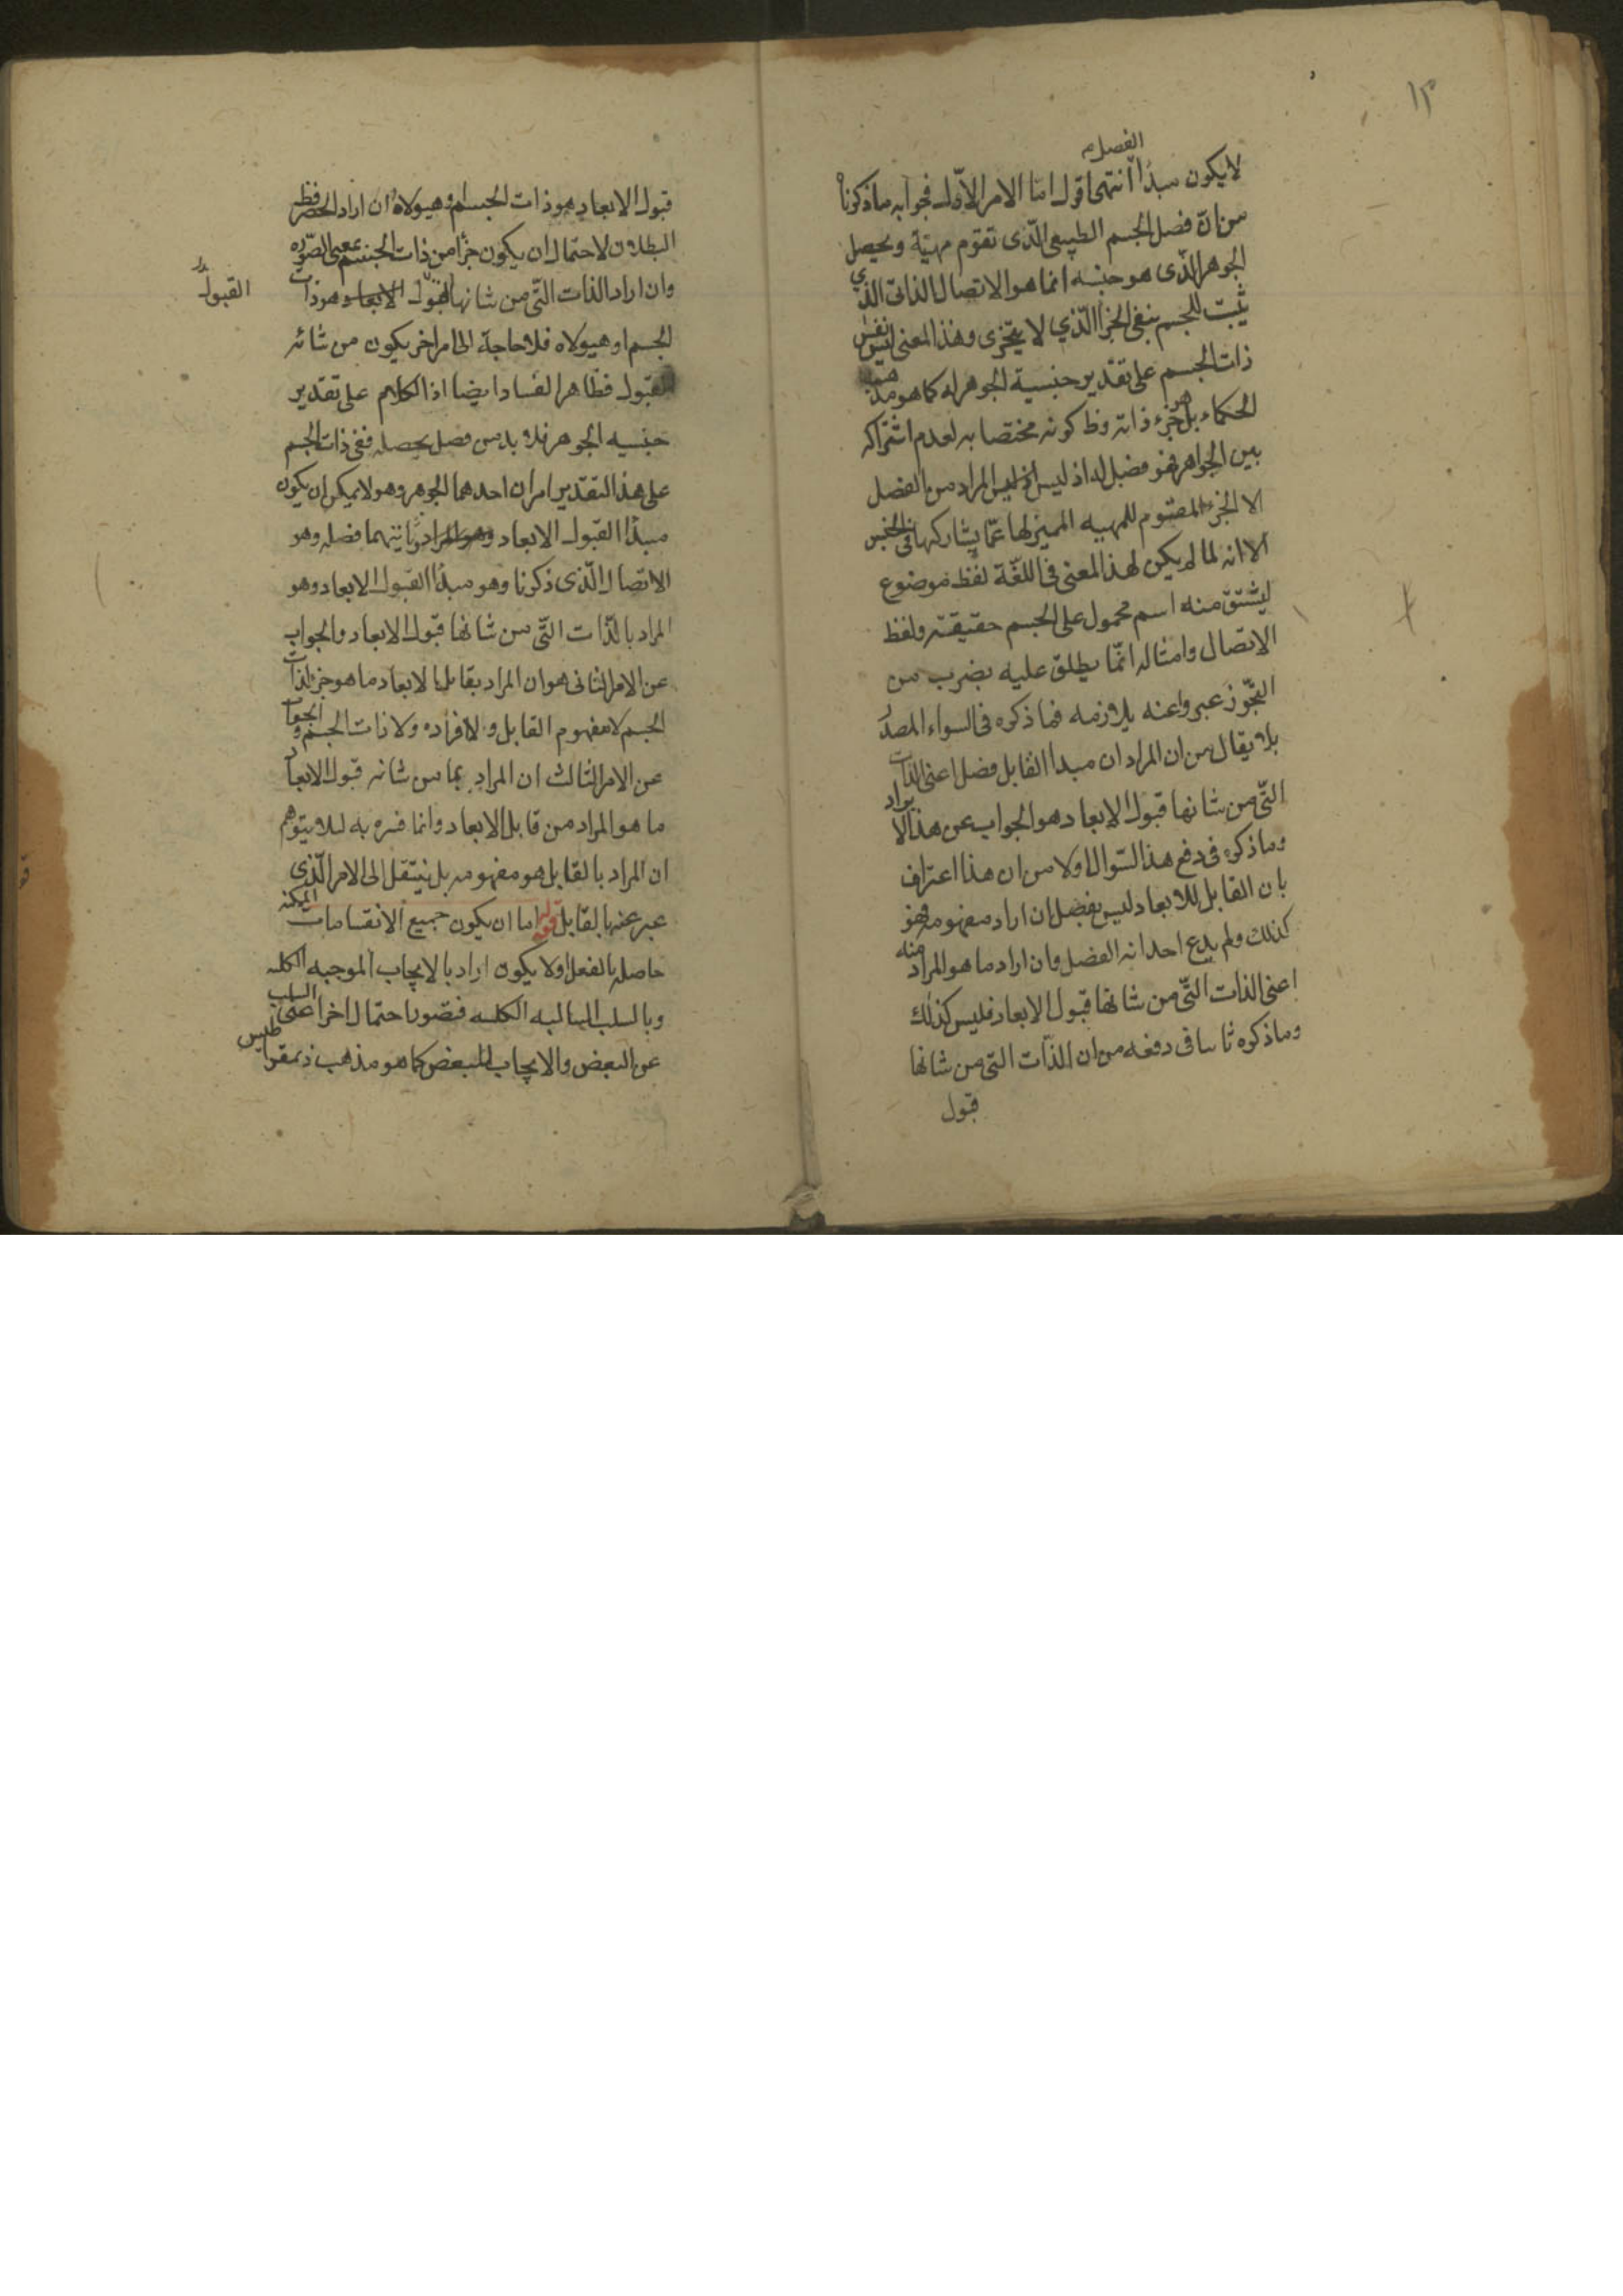 ١٣
الفصل
لا يكون مبدأ انتهى اقول اما الامر الاوّل فجوابه ما ذكرنا
من انّ فصل الجسم الطبيعى الّذى تقوم مهيّة ويحصل
الجوهر الّذى هو جنسه انما هو الاتصال الذاتى الذي
يثبت للجسم بنفى الجزأ الّذي لا يتجزى وهذا المعنى ليس نفس
ذات الجسم على تقدير جنسية الجوهر له كما هو مذهب
الحكماء بل هو جزء ذاته وظ كونه مختصا به لعدم اشتراكه
بين الجواهر فهو فصل له اذ ليس المراد من الفصل
الا الجزء المقوم للمهيه المميز لها عمّا يشاركها فى الجنس
الا انه لما لم يكن لهذا المعنى فى اللغّة لفظ موضوع
ليشتق منه اسم محمول على الجسم حقيقته ولفظ
الاتصال وامثاله انّما يطلق عليه بضرب من
التجّوز عبر واعنه بلازمه فما ذكره فى السواء المصدر
بلا يقال من ان المراد ان مبدا القابل فصل اعنى الذات
التّى من شانها قبول الابعاد هو الجواب عن هذا الايراد
وما ذكره فى دفع هذا السّوال اولا من ان هذا اعتراف
بان القابل للابعاد ليس بفصل ان اراد مفهومه فهو
كذلك ولم يدع احد انه الفصل وان اراد ما هو المراد منه
اعنى الذات التّى من شانها قبول الابعاد فليس كذلك
وما ذكره ثانيا فى دفعه من ان الذّات التى من شانها
قبول
قبول الابعاد هو ذات الجسم او هيولاه ان اراد الحصر فظ
البطلان لاحتمال ان يكون جزأ من ذات الجسم معنى الصّوره
وان اراد الذات التّى من شانها القبول الابعاد هو ذات
القبول
الجسم او هيولاه فلا حاجة الى امر اخر يكون من شانه
القبول فظاهر الفساد ايضا اذ الكلام على تقدير
جنسيه الجوهر فلا بد من فصل يحصله ففى ذات الجسم
على هذا التقدير امران احدهما الجوهر وهو لا يمكن ان يكون
مبدأ القبول الابعاد وثانيهما فصله وهو
الاتصال الّذى ذكرنا وهو مبدأ القبول الابعاد وهو
المراد بالذّات التّى من شانها قبول الابعاد والجواب
عن الامر الثانى هو ان المراد بقابل الابعاد ما هو جزء لذات
الجسم لا مفهوم القابل ولا افراده ولا ذات الجسم والجواب
عن الامر الثالث ان المراد بما من شانه قبول الابعاد
ما هو المراد من قابل الابعاد وانما فسره به لئلا يتوهم
ان المراد بالقابل هو مفهومه بل ينتقل الى الامر الّذى
عبر عنه بالقابل قوله اما ان يكون جميع الانقسامات الممكنه
حاصله بالفعل اولا يكون اراد بالايجاب الموجبه الكليه
وبالسلب السالبه الكليه فتصور احتمال اخر اعنى السلب
عن البعض والايجاب للبعض كما هو مذهب ذيمقراطيس